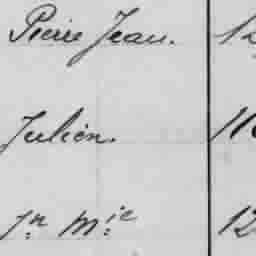 Pierre Jean. 12
Julien. 118
Jn Mie 12